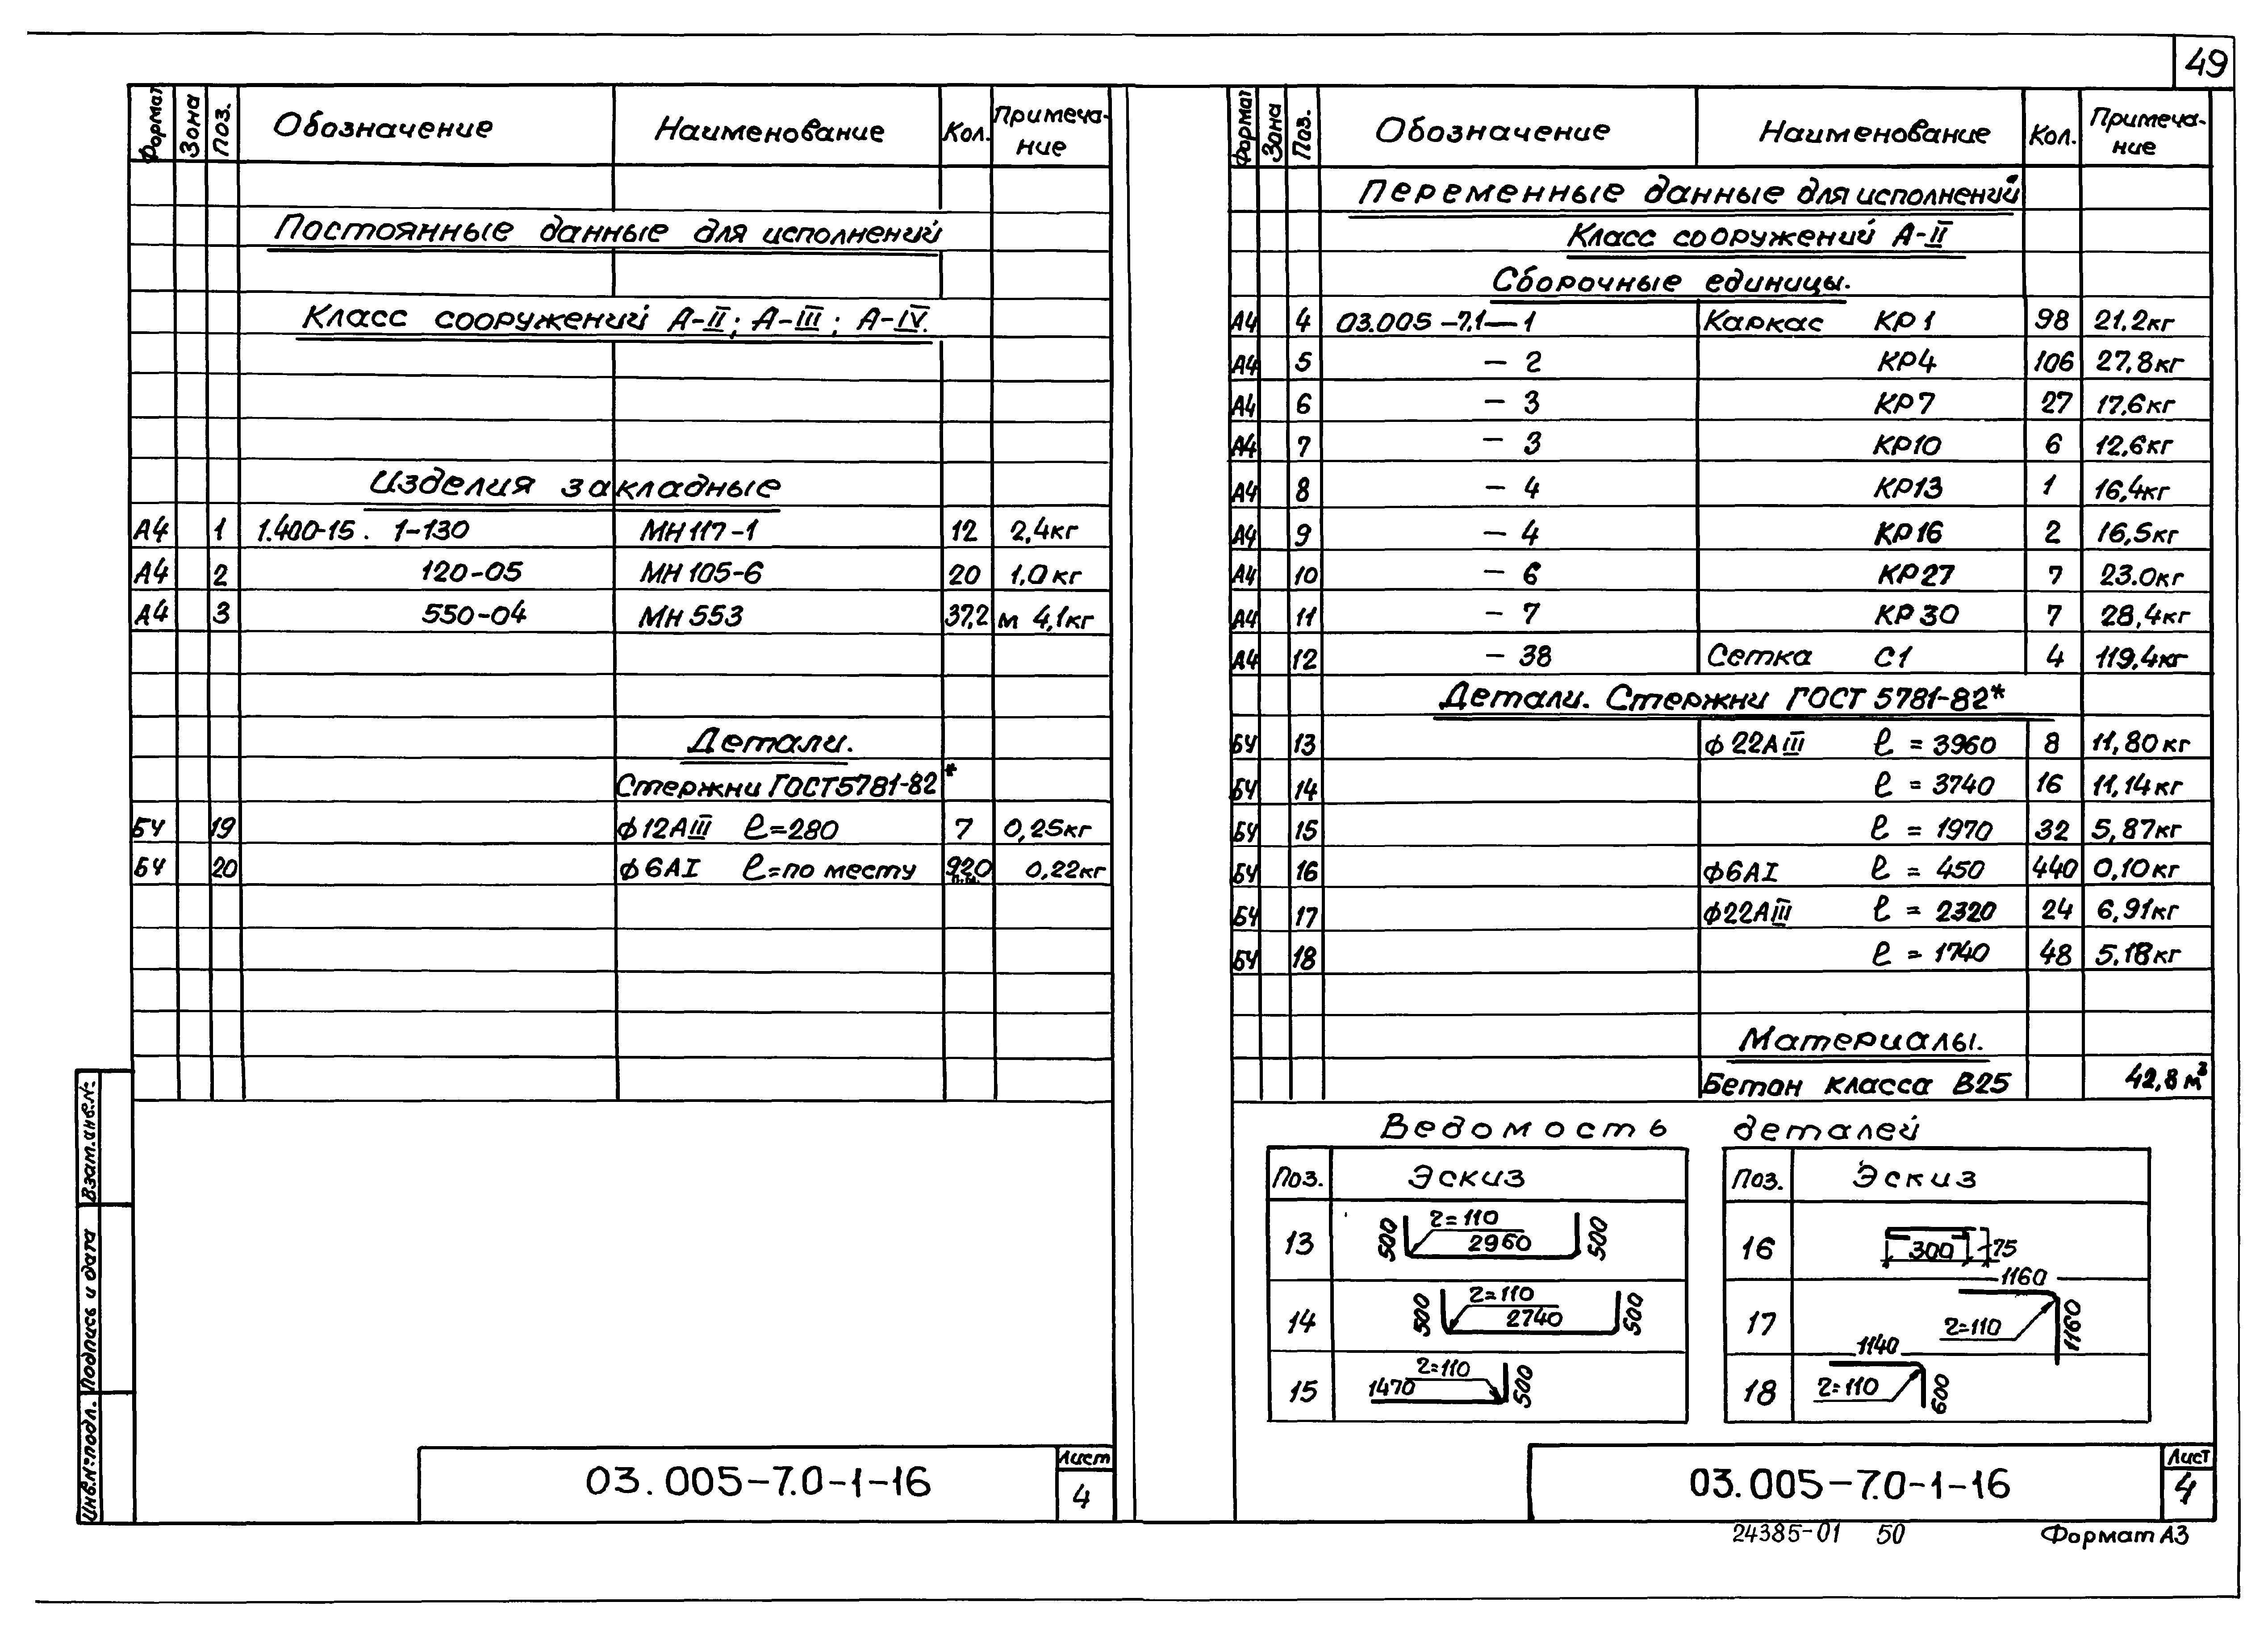 49
Формат Зона Поз. Обозначение Наименование Кол. Примеча-
ние
Постоянные данные для исполнений
Класс сооружений А-II; А-III; А-IV.
Изделия закладные
А4 1 1.400-15. 1-130 МН 117-1 12 2,4кг
А4 2 120-05 МН 105-6 20 1,0кг
А4 3 550-04 МН 553 37,2 м 4,1кг
Детали.
Стержни ГОСТ 5781-82*
БЧ 19 ϕ12АIII ℓ=280 7 0,25кг
БЧ 20 ϕ6АI ℓ=по месту 920 п.м. 0,22кг
Взам.инв.№
Подпись и дата
Инв.№подл.
03.005-7.0-1-16
Лист
4
Формат Зона Поз. Обозначение Наименование Кол. Примеча-
ние
Переменные данные для исполнений
Класс сооружений А-II
Сборочные единицы.
А4 4 03.005-7.1-1 Каркас КР1 98 21.2кг
А4 5 - 2 КР4 106 27,8кг
А4 6 - 3 КР7 27 17,6кг
А4 7 - 3 КР10 6 12,6кг
А4 8 - 4 КР13 1 16,4кг
А4 9 - 4 КР16 2 16,5кг
А4 10 - 6 КР27 7 23.0кг
А4 11 - 7 КР30 7 28,4кг
А4 12 - 38 Сетка С1 4 119,4кг
Детали. Стержни ГОСТ 5781-82*
БЧ 13 ϕ22АIII ℓ = 3960 8 11,80кг
БЧ 14 ℓ = 3740 16 11,14кг
БЧ 15 ℓ = 1970 32 5,87кг
БЧ 16 ϕ6АI ℓ = 450 440 0,10кг
БЧ 17 ϕ22АIII ℓ = 2320 24 6,91кг
БЧ 18 ℓ = 1740 48 5.18кг
Материалы.
Бетон класса В25 42,8м³
Ведомость деталей
Поз. Эскиз
13 500 r=110 2960 500
14 500 r=110 2740 500
15 1470 r=110 500
Поз. Эскиз
16 300 75
17 1160 r=110 1160
18 1140 r=110 600
03.005-7.0-1-16
Лист
4
24385-01 50 Формат А3